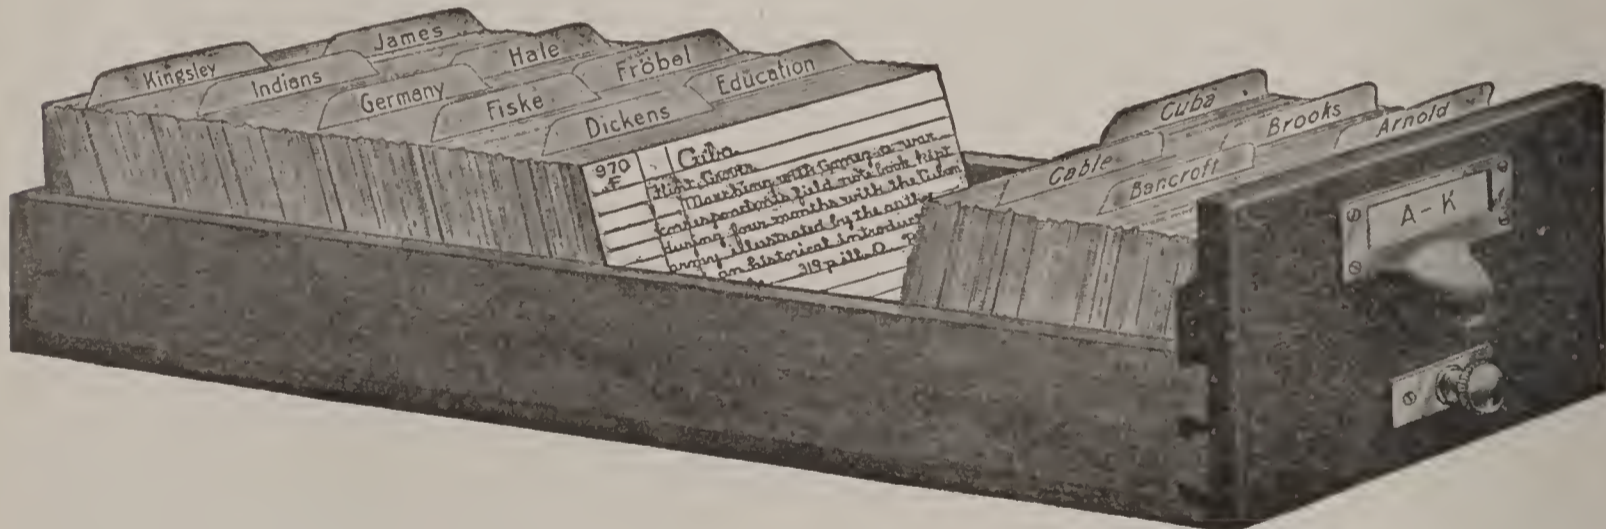 Kingsley
James
Indians
Hale
Germany
Fröbel
Fiske
Education
Dickens
970
F
Cuba
Flint, Grover
Marching with Gomez; a war
correspondent's field note-book kept
during four months with the Cuban
army; illustrated by the auth
an historical introduct
319 p. ill. O.
Cuba
Brooks
Arnold
Cable
Bancroft
A-K